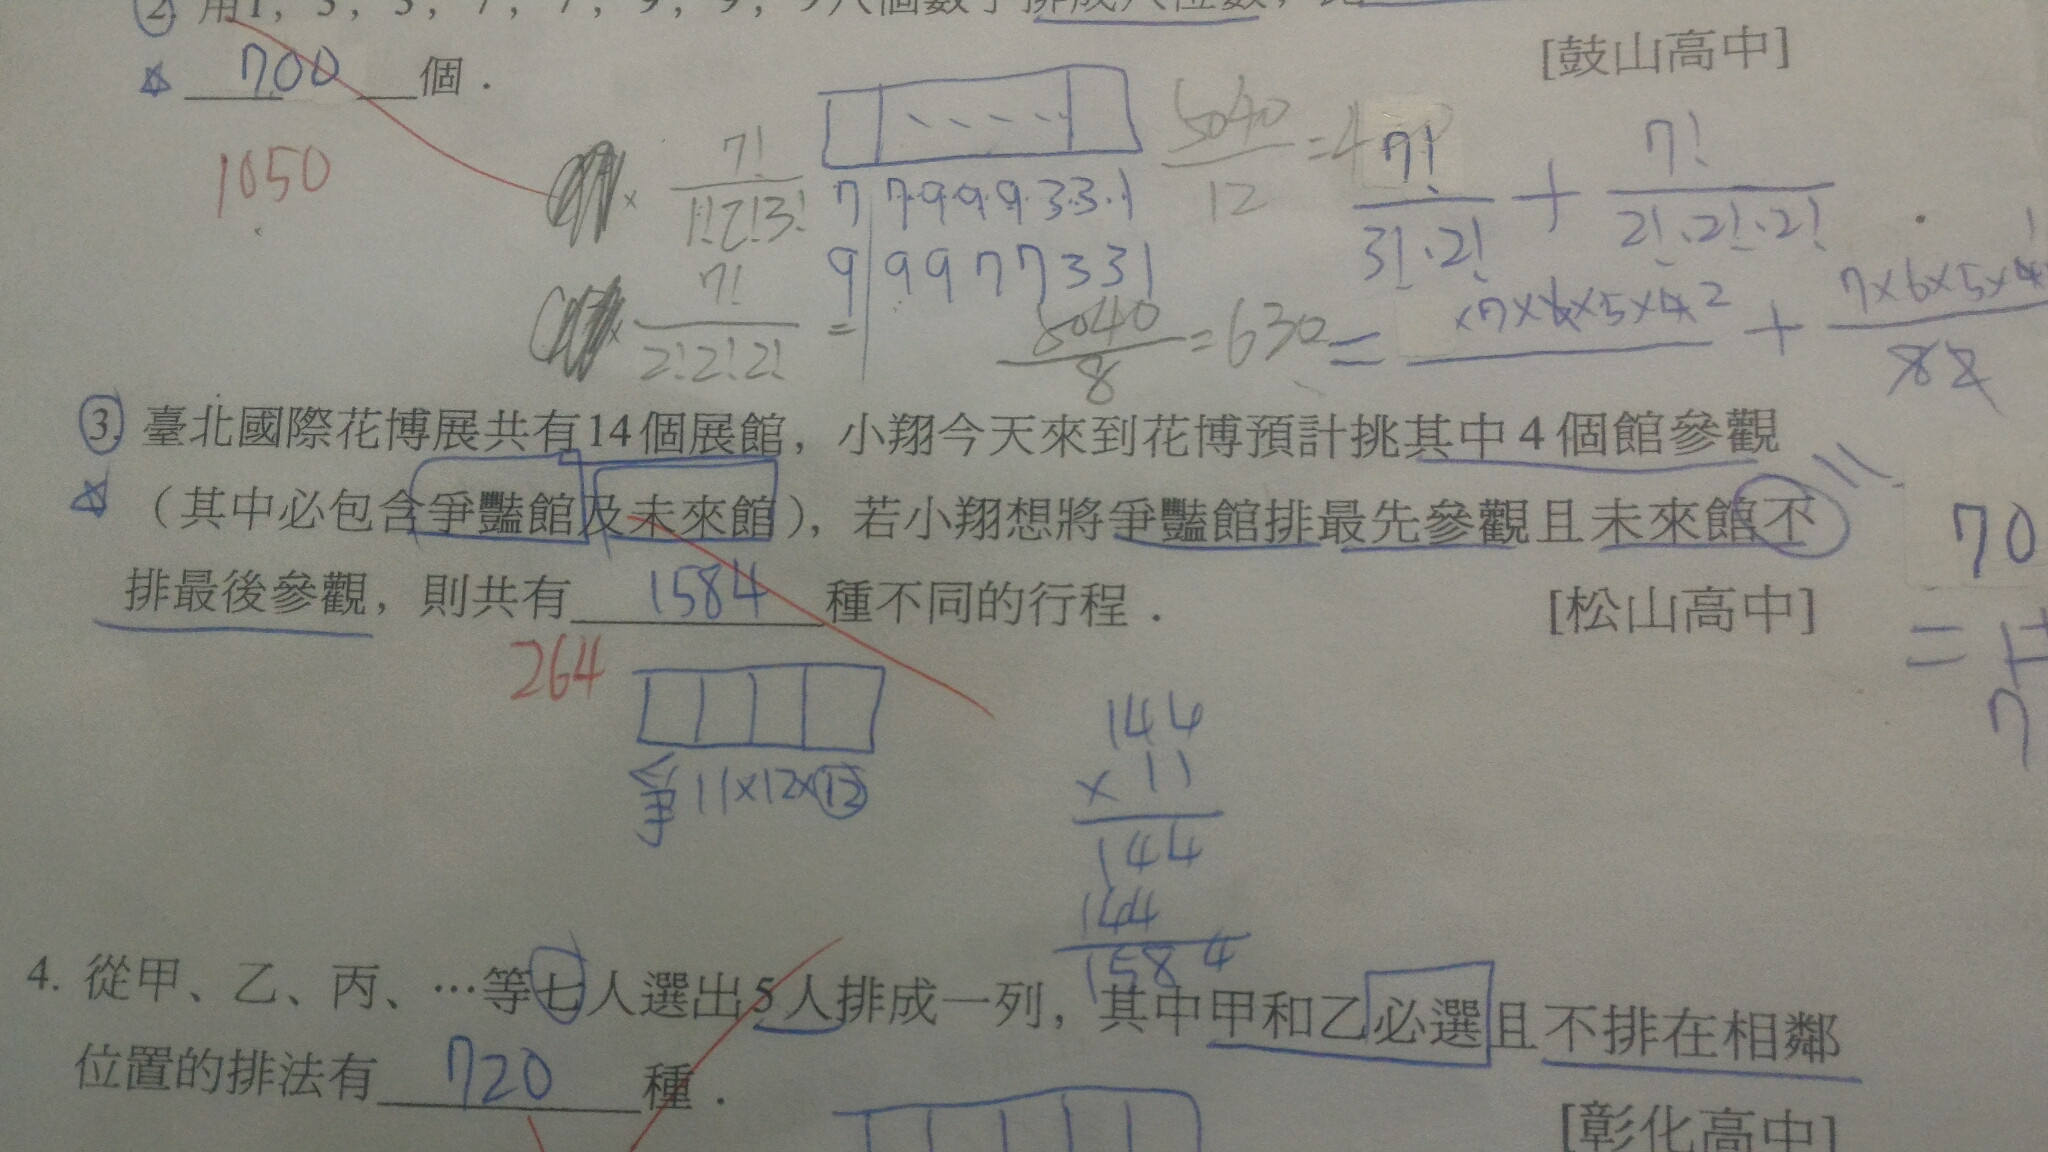 ② 用1，3，3，7，7，9，9，9八個數字排成八位數，
700 個．
[鼓山高中]
1050
7!
1!2!3!
7 7 9 9 9 3 3 1
5040
12
=4
7!
3!·2!
+
7!
2!·2!·2!
7!
2!2!2!
=
9 9 9 7 7 3 3 1
5040
8
=630
=
×7×6×5×4 2
+
7×6×5×4
82
③. 臺北國際花博展共有14個展館，小翔今天來到花博預計挑其中4個館參觀
（其中必包含爭豔館及未來館），若小翔想將爭豔館排最先參觀且未來館不
排最後參觀，則共有 1584 種不同的行程．
[松山高中]
70
=
7
264
爭 11×12×12
144
× 11
144
144
1584
4. 從甲、乙、丙、⋯等七人選出5人排成一列，其中甲和乙必選且不排在相鄰
位置的排法有 720 種．
[彰化高中]